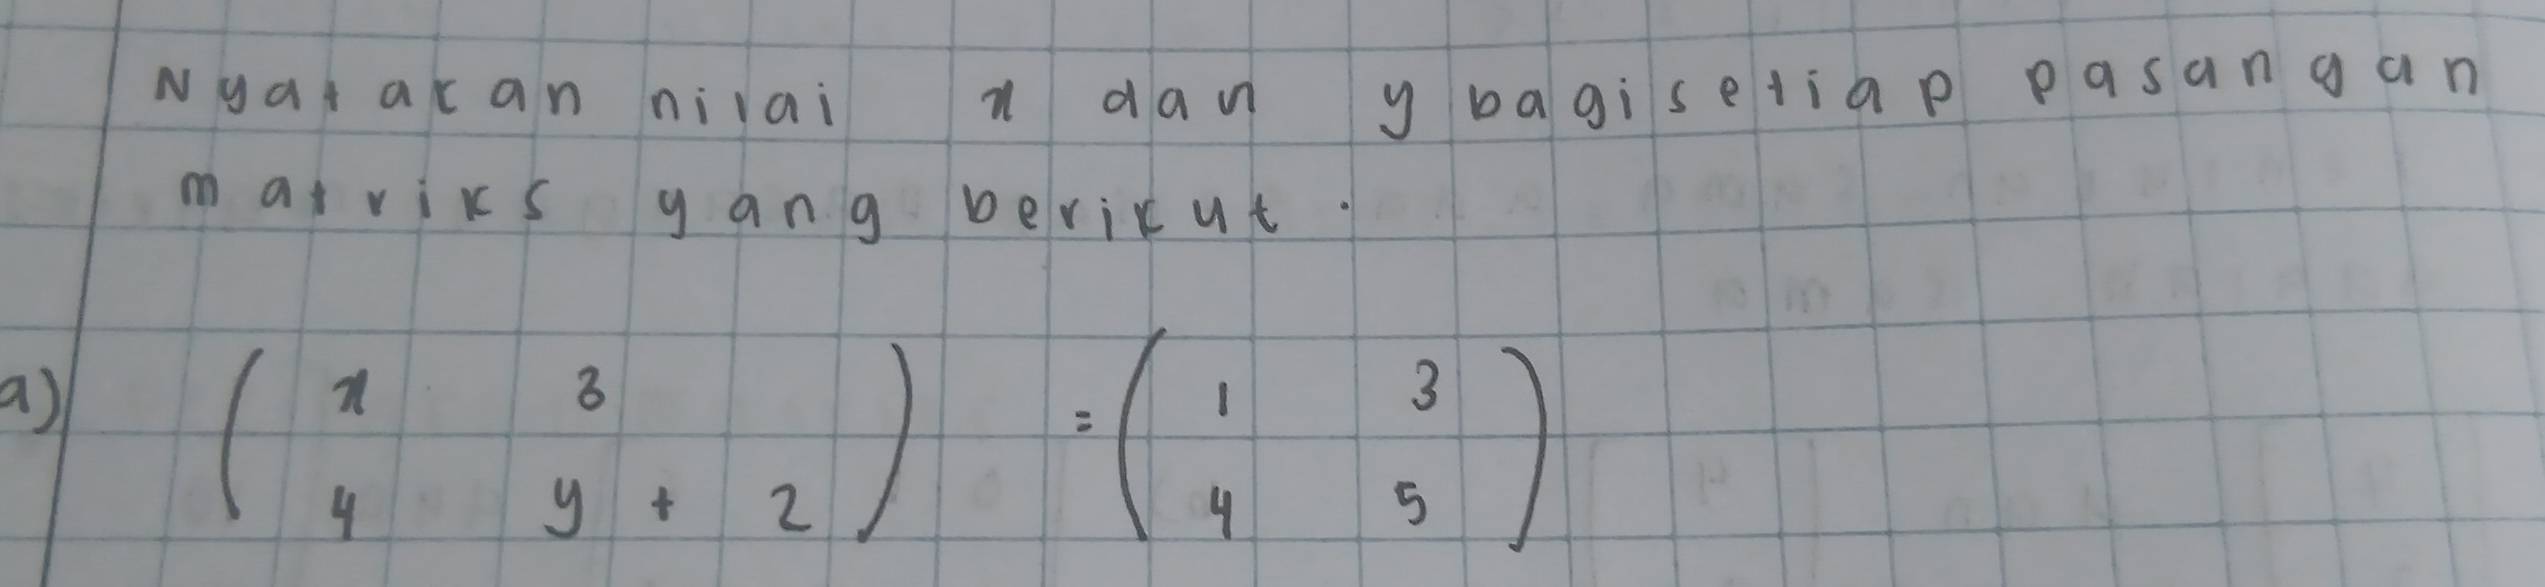 Nyatakan nilai x dan y bagi setiap pasangan
matriks yang berikut.
a) ( x 3 ) = ( 1 3 )
( 4 y + 2 ) ( 4 5 )